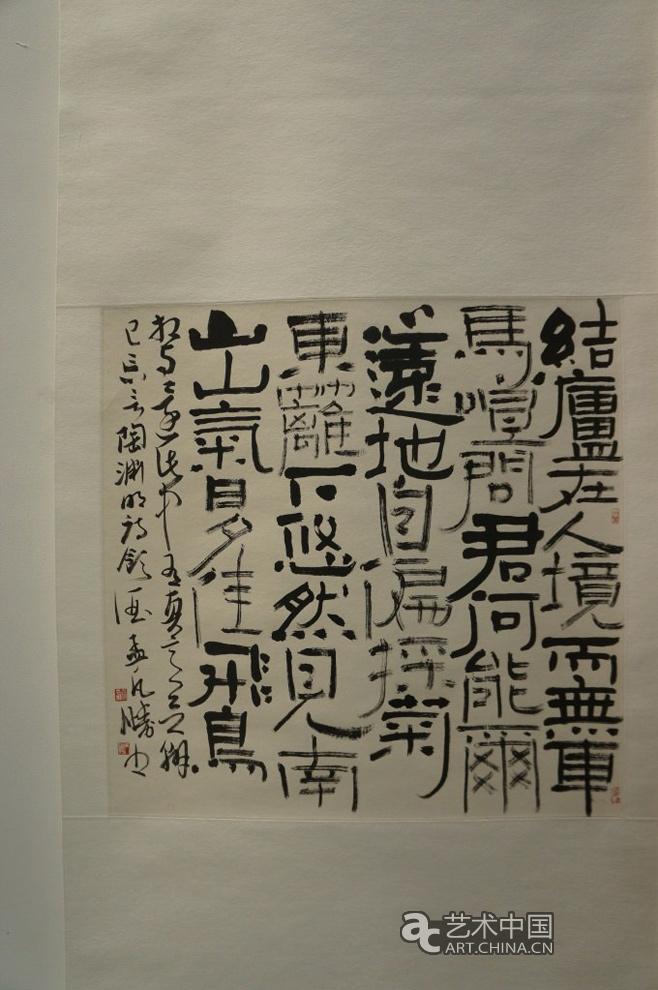 結廬在人境而無車
馬喧問君何能爾
心遠地自偏採菊
東籬下悠然見南
山山氣日夕佳飛鳥
相与還此中有真意欲辨
已忘言陶渊明詩飲酒孟凡勝书
艺术中国
ART.CHINA.CN